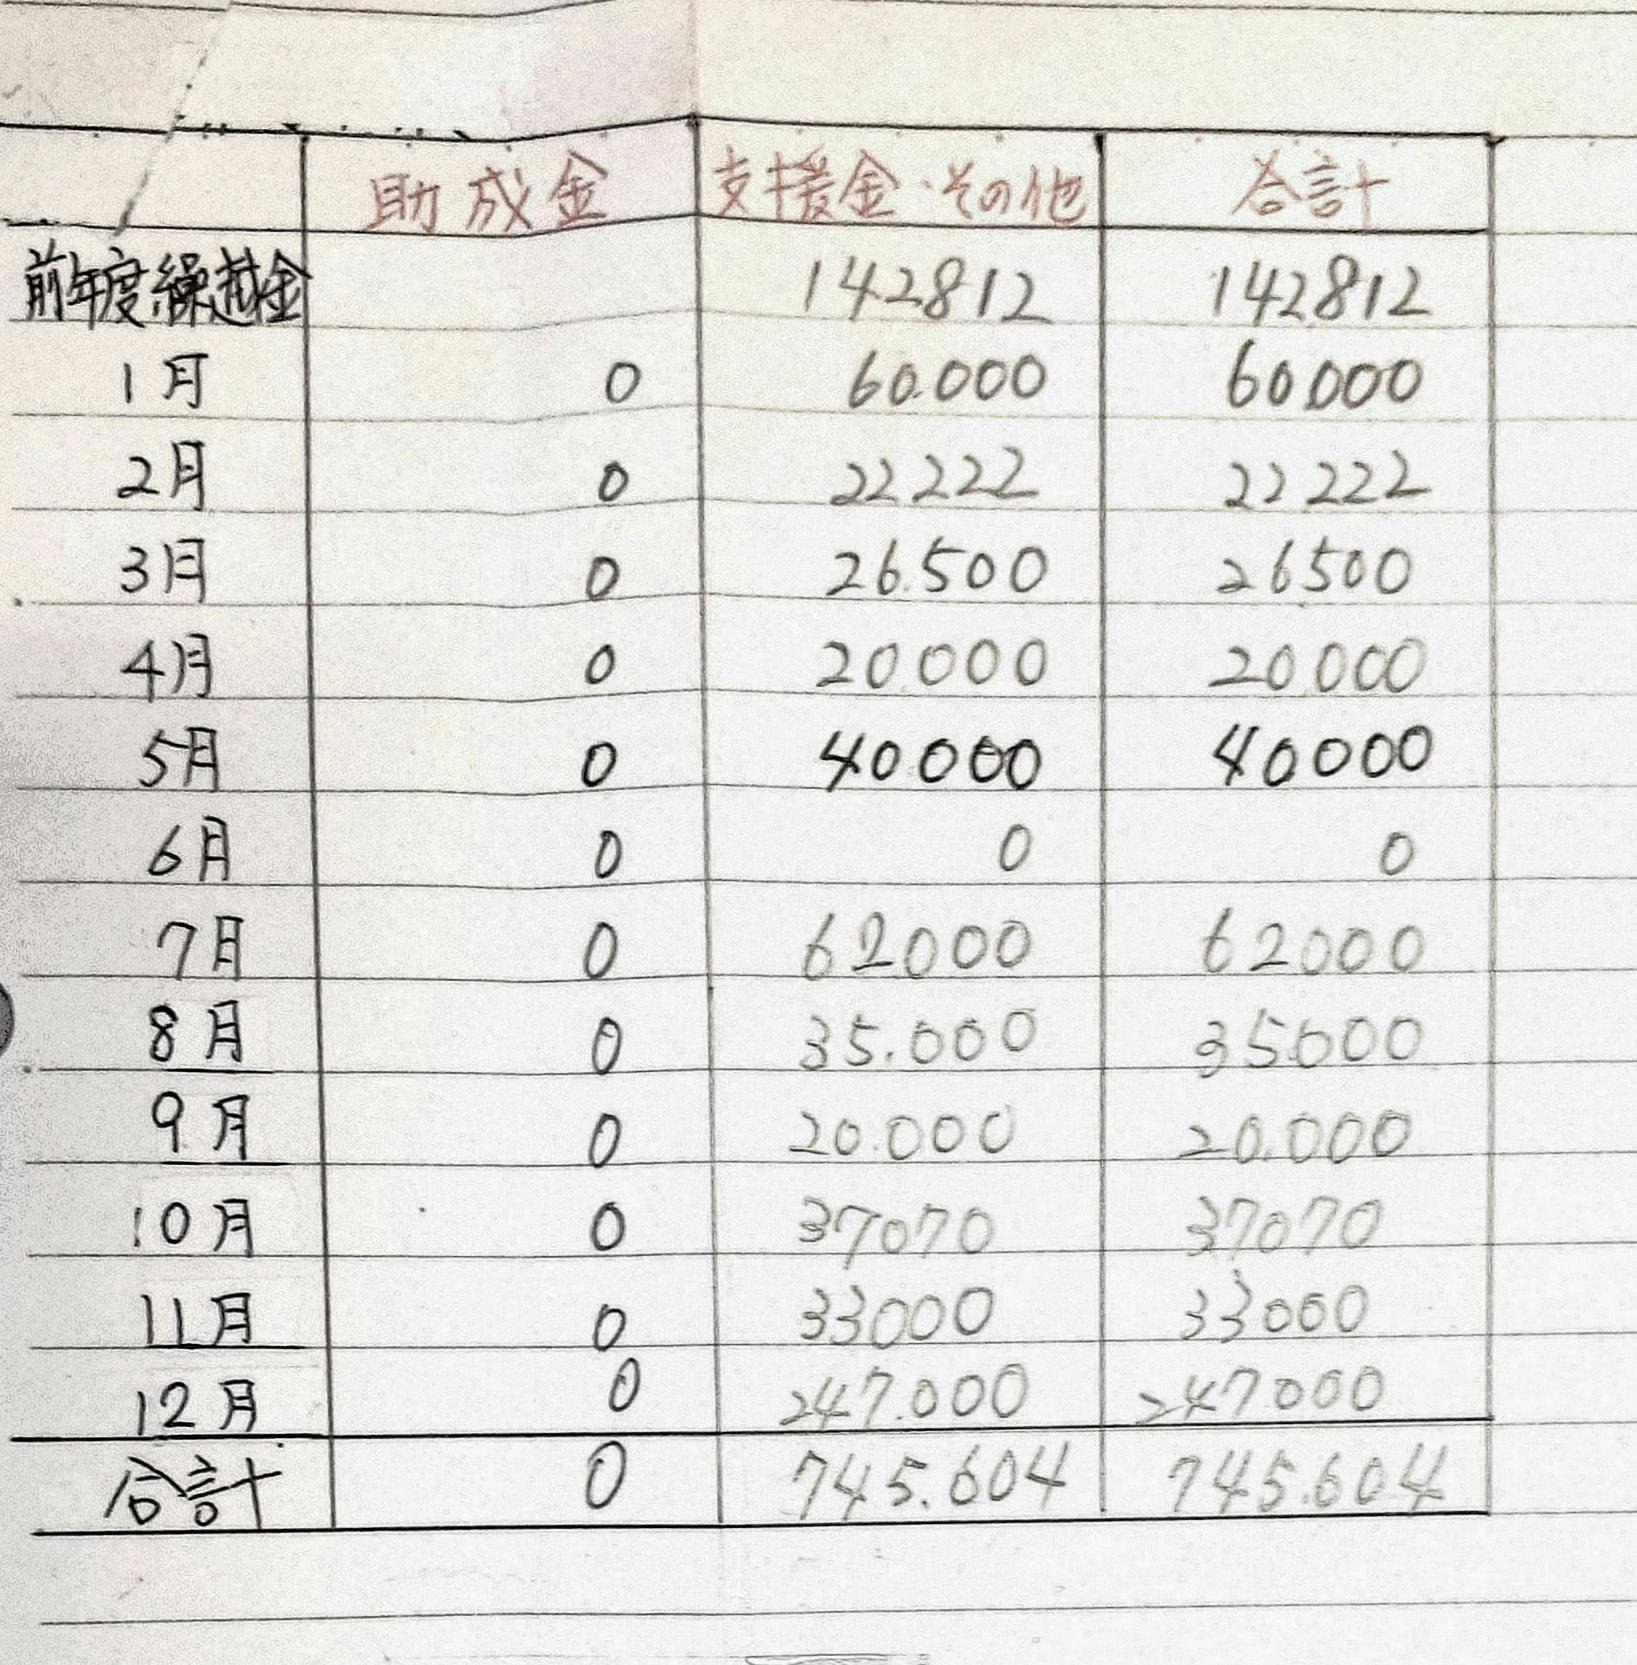 助成金 支援金・その他 合計
前年度繰越金 142812 142812
1月 0 60.000 60.000
2月 0 22222 22222
3月 0 26.500 26500
4月 0 20.000 20.000
5月 0 40.000 40000
6月 0 0 0
7月 0 62000 62000
8月 0 35.000 35.000
9月 0 20.000 20.000
10月 0 37070 37070
11月 0 33000 33000
12月 0 247.000 247000
合計 0 745.604 745.604